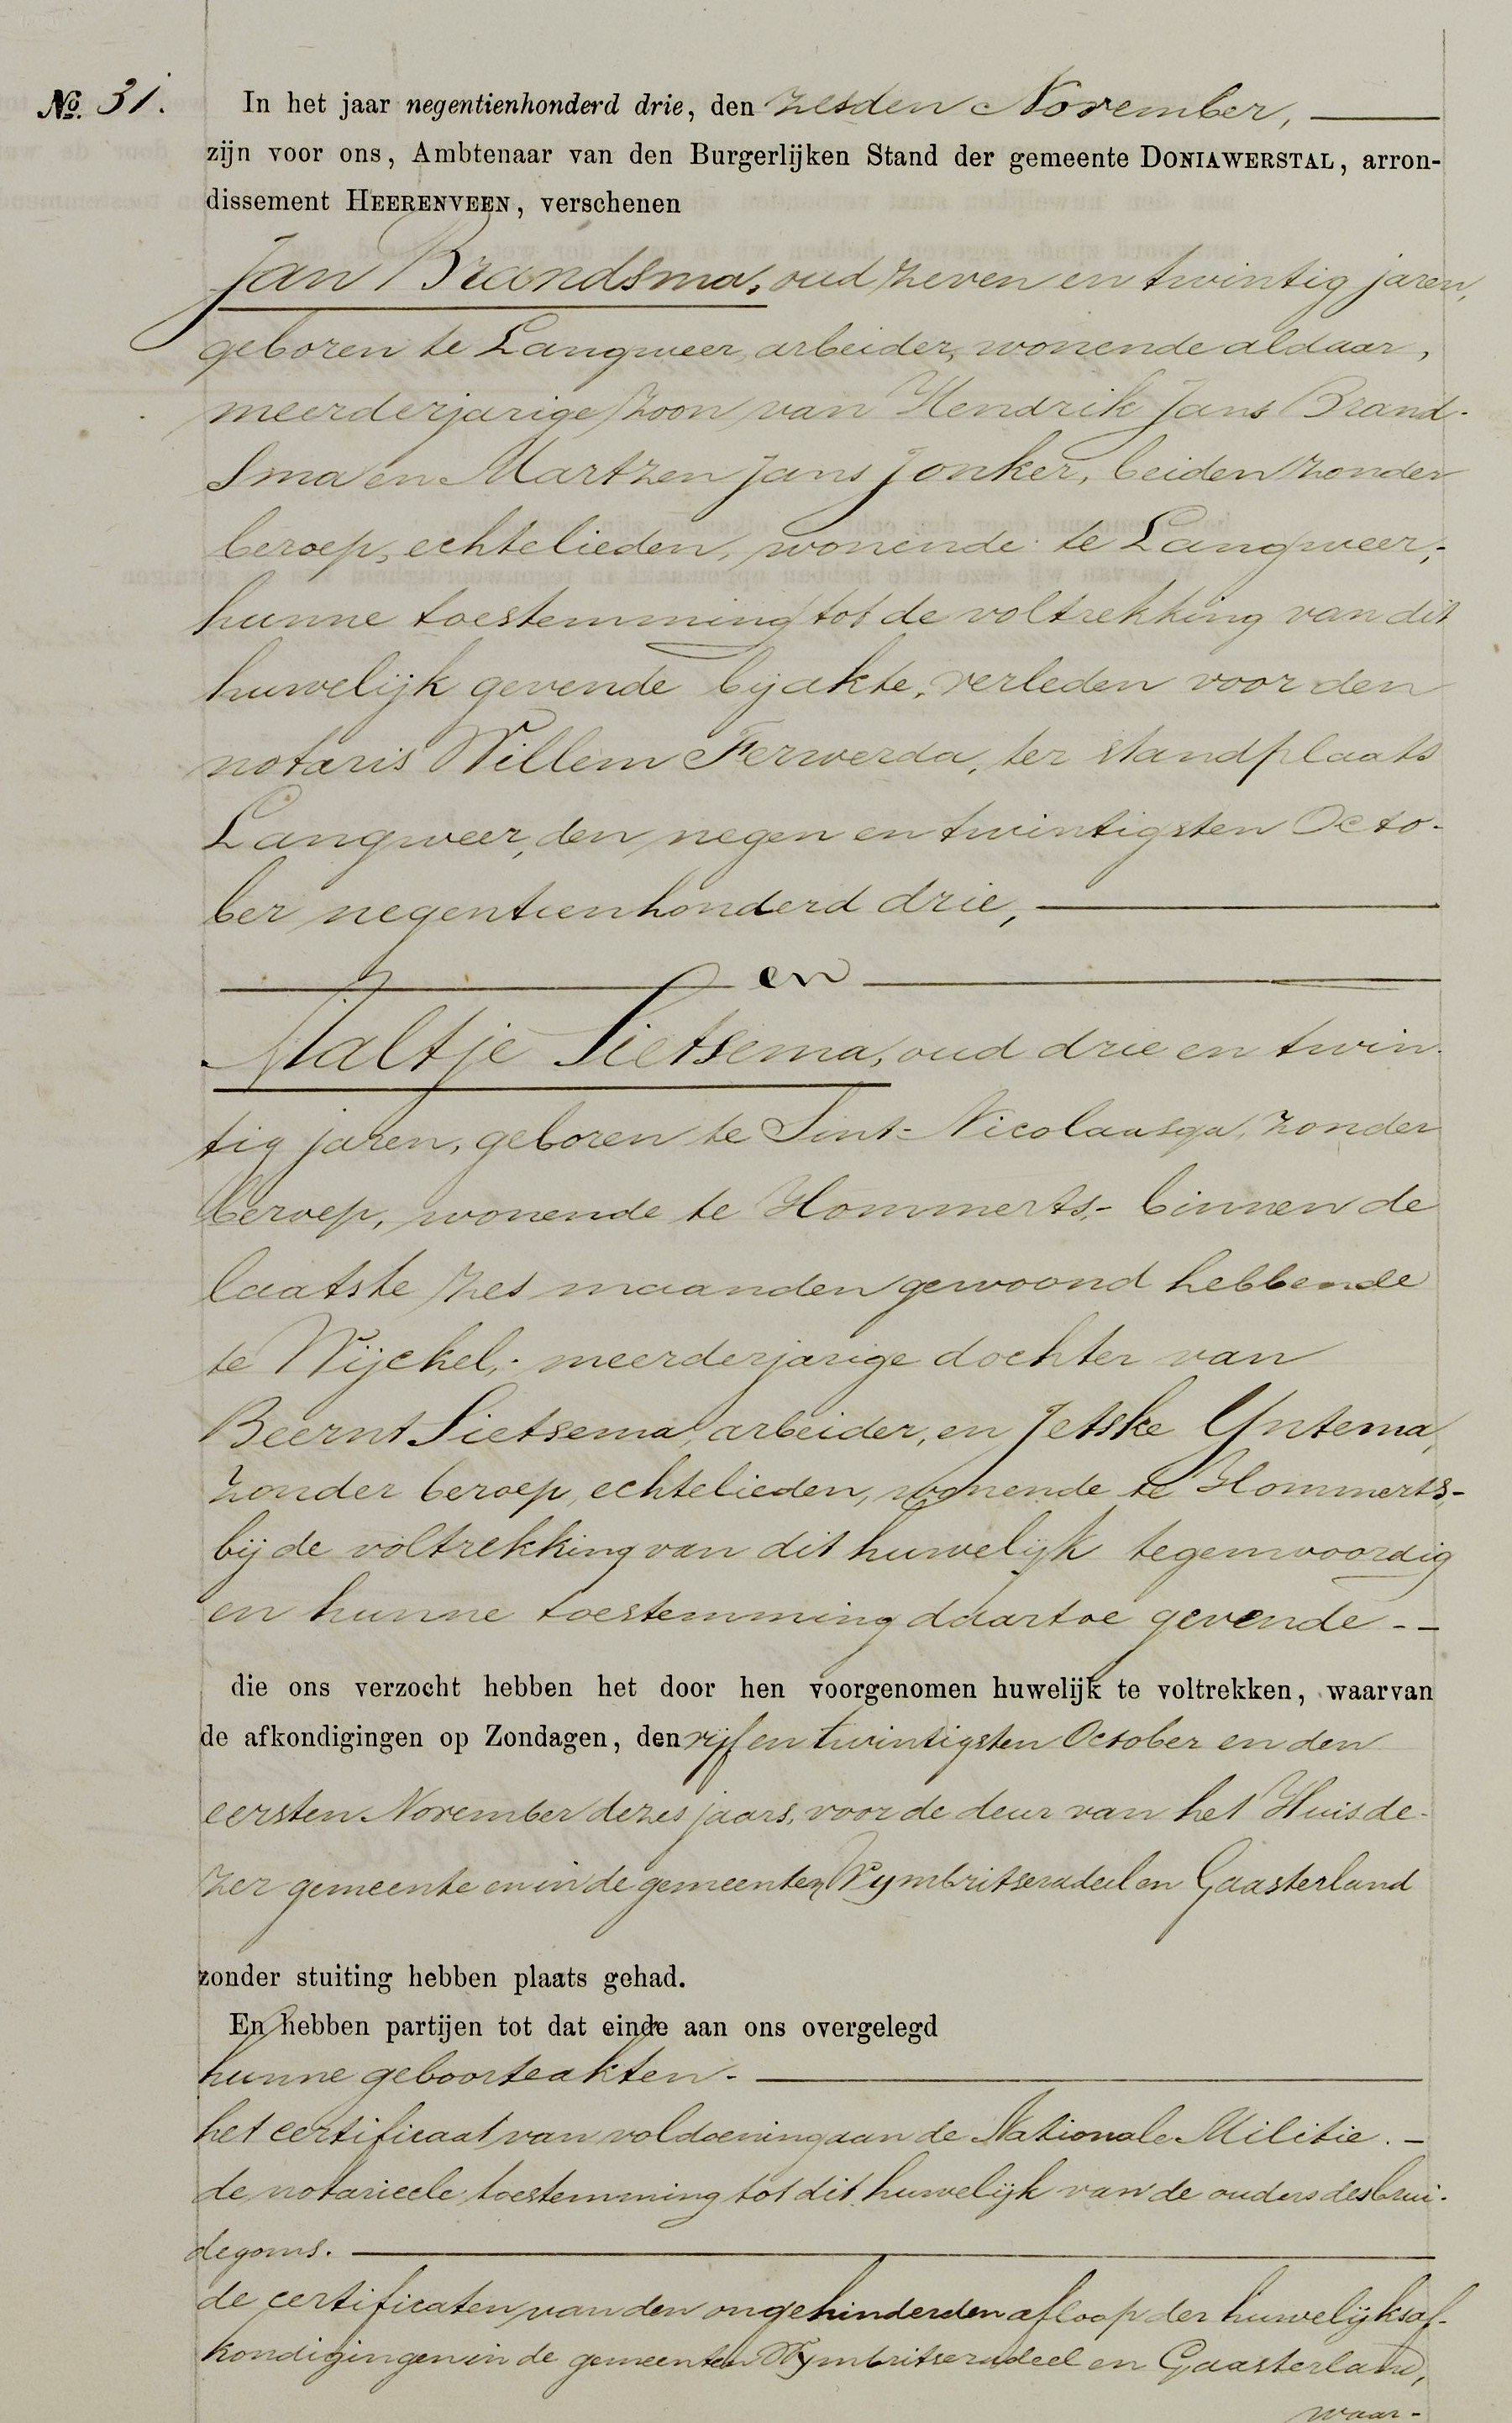 No. 31. In het jaar negentienhonderd drie, den zesden November,
zijn voor ons, Ambtenaar van den Burgerlijken Stand der gemeente DONIAWERSTAL, arron-
dissement HEERENVEEN, verschenen
Jan Brandsma, oud zeven en twintig jaren,
geboren te Langweer, arbeider, wonende aldaar,
meerderjarige zoon van Hendrik Jans Brand-
sma en Martzen Jans Jonker, beiden zonder
beroep, echtelieden, wonende te Langweer,-
hunne toestemming tot de voltrekking van dit
huwelijk gevende bij akte, verleden voor den
notaris Willem Ferwerda, ter standplaats
Langweer, den negen en twintigsten Octo-
ber negentienhonderd drie,
en
Maltje Sietsema, oud drie en twin-
tig jaren, geboren te Sint-Nicolaasga, zonder
beroep, wonende te Hommerts,- binnen de
laatste zes maanden gewoond hebbende
te Wijckel,- meerderjarige dochter van
Beernt Sietsema, arbeider, en Jetske Yntema,
zonder beroep, echtelieden, wonende te Hommerts,-
bij de voltrekking van dit huwelijk tegenwoordig
en hunne toestemming daartoe gevende --
die ons verzocht hebben het door hen voorgenomen huwelijk te voltrekken, waarvan
de afkondigingen op Zondagen, den vijf en twintigsten October en den
eersten November dezes jaars, voor de deur van het Huis de-
zer gemeente en in de gemeenten Wymbritseradeel en Gaasterland
zonder stuiting hebben plaats gehad.
En hebben partijen tot dat einde aan ons overgelegd
hunne geboorteakten.
het certificaat van voldoening aan de Nationale Militie. -
de notarieele toestemming tot dit huwelijk van de ouders des brui-
degoms.
de certificaten van den ongehinderden afloop der huwelijksaf-
kondigingen in de gemeenten Wymbritseradeel en Gaasterland,
waar-